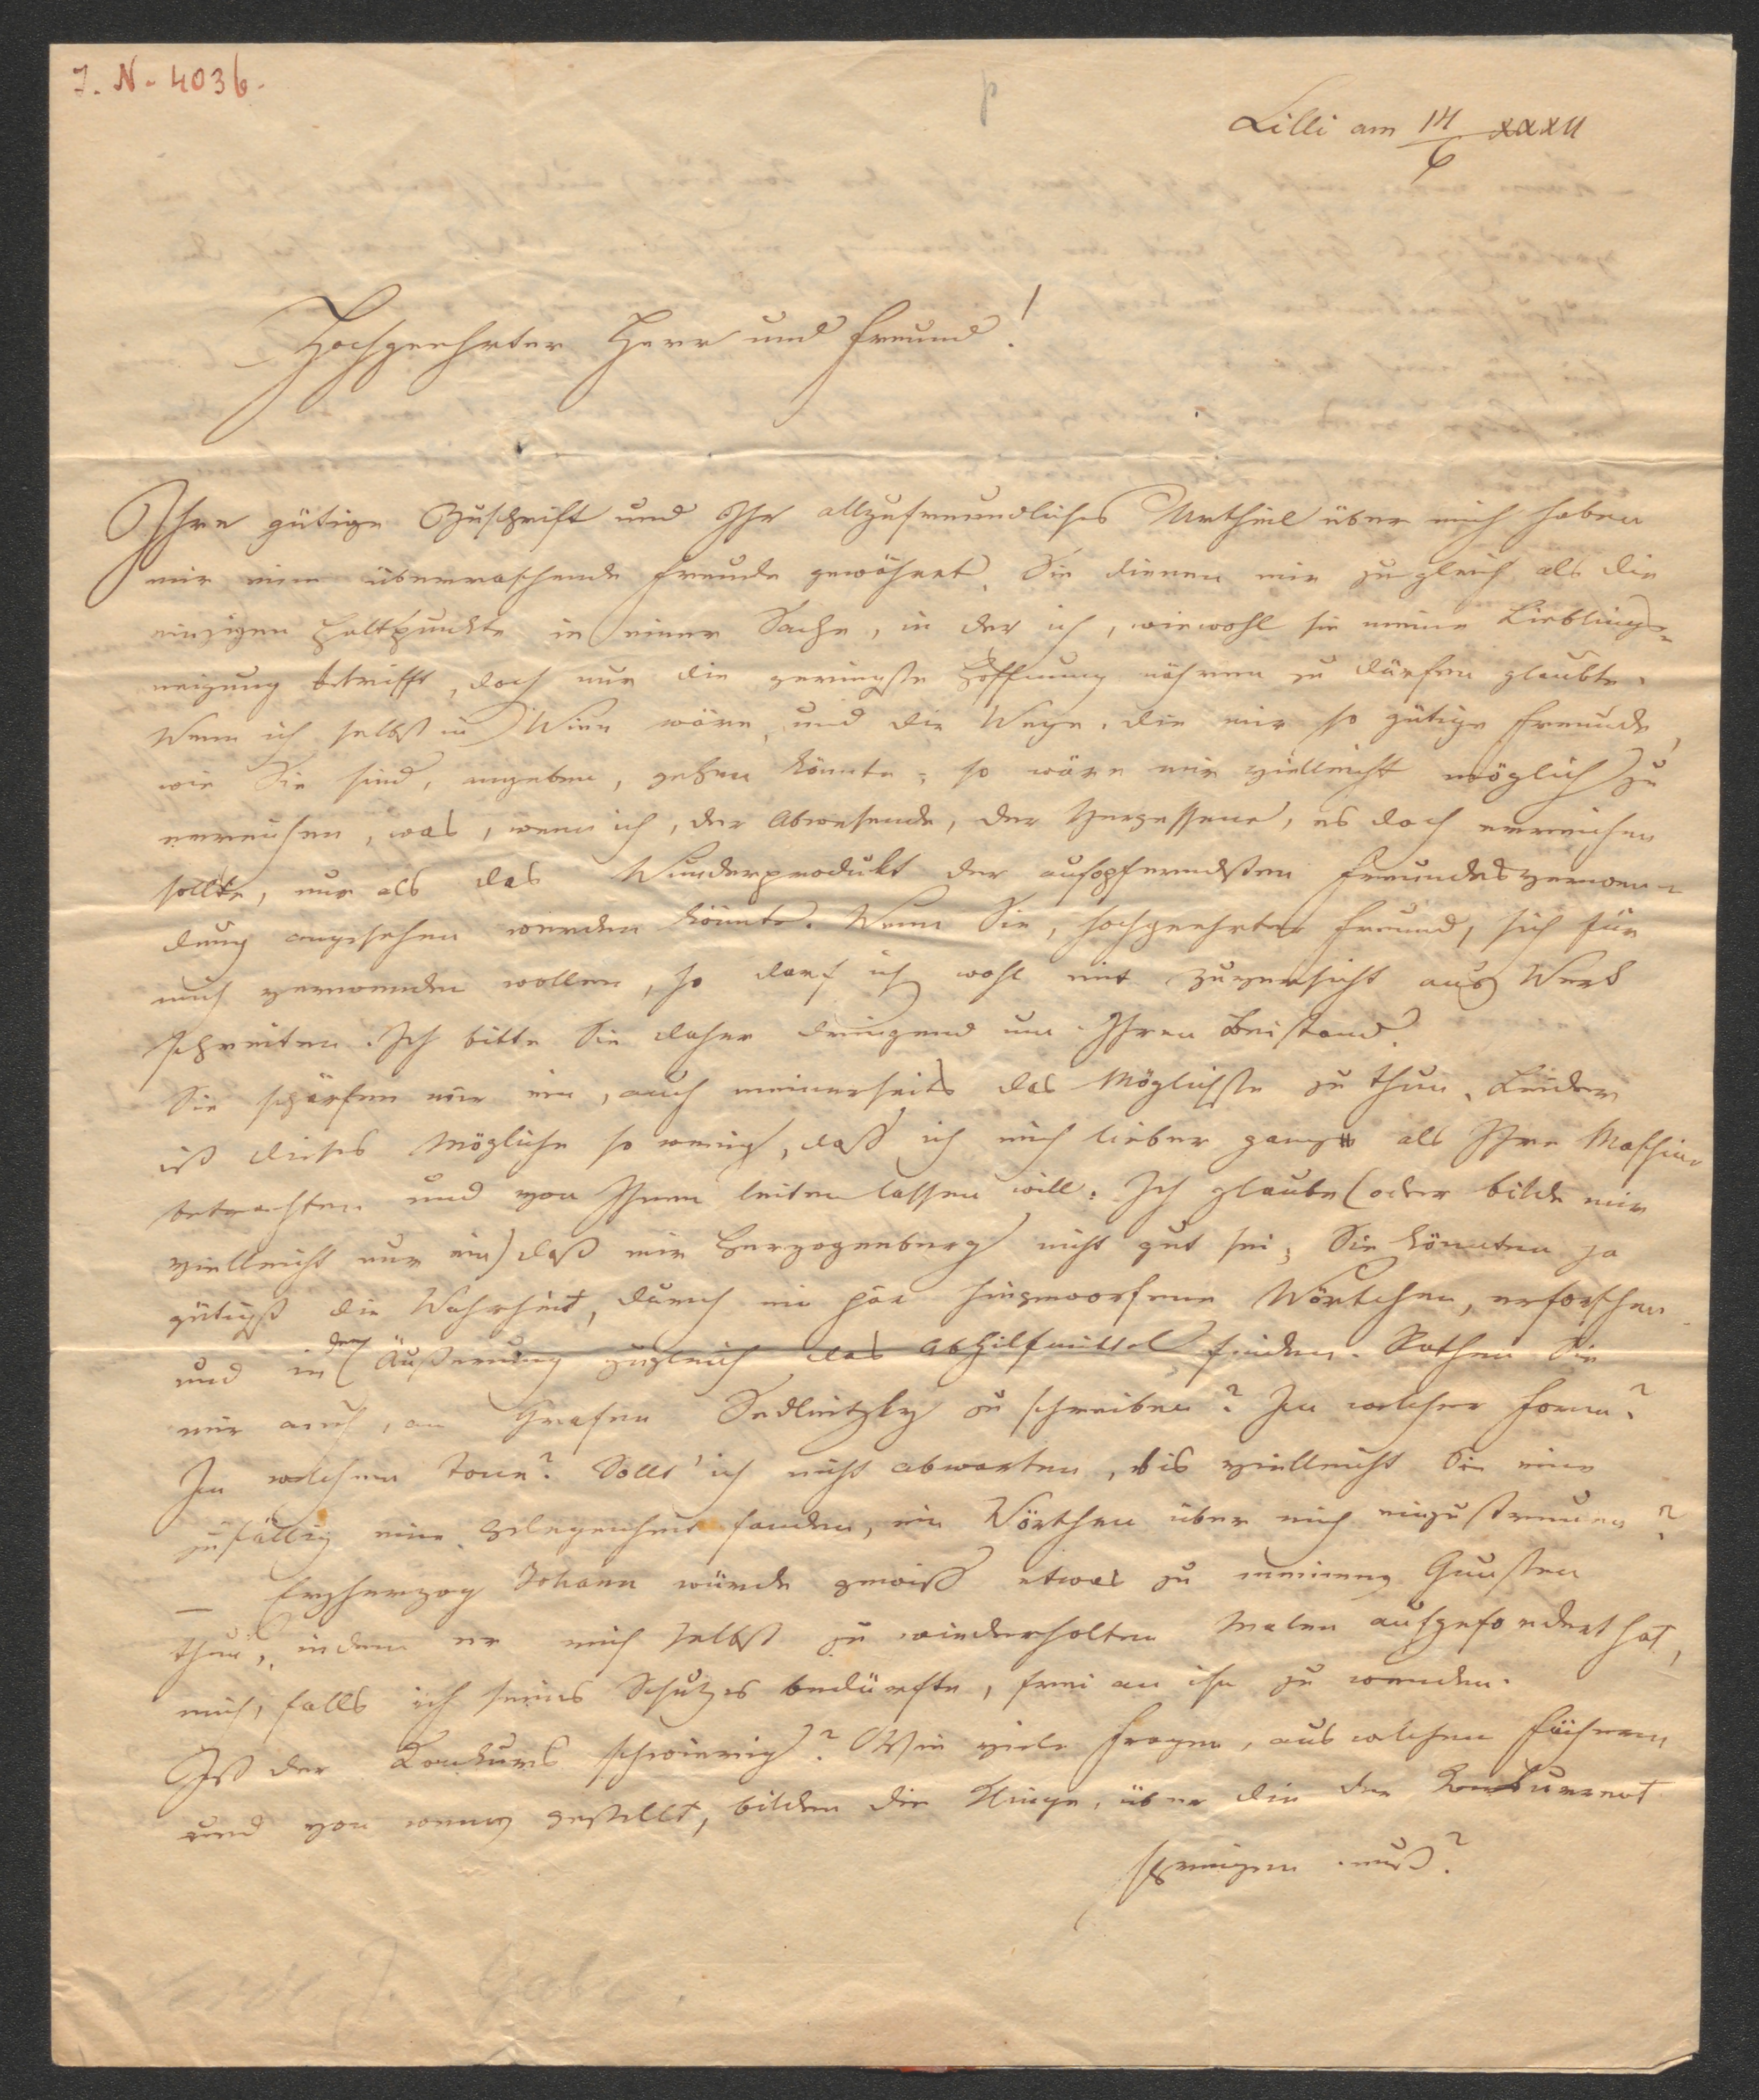 I. N. 4036.
Cilli am 14/6 XXXII
Hochgeehrter Herr und Freund!
Ihre gütige Zuschrift und Ihr allzufreundliches Urtheil über mich haben
mir eine überraschende Freude gewährt. Sie dienen mir zugleich als die
einzigen Haltpunkte in einer Sache, in der ich, wiewohl sie meine Lieblings-
neigung betrifft, doch nur die geringste Hoffnung nähren zu dürfen glaubte.
Wenn ich selbst in Wien wäre, und die Wege, die mir so gütige Freunde,
wie Sie sind, angeben, gehen könnte; so wäre mir vielleicht möglich zu
erreichen, was, wenn ich, der Abwesende, der Vergessene, es doch erreichen
sollte, nur als das Wunderprodukt der aufopferndsten Freundesverwen-
dung angesehen werden könnte. Wenn Sie, hochgeehrter Freund, sich für
mich verwenden wollen, so darf ich wohl mit Zuversicht ans Werk
schreiten. Ich bitte Sie daher dringend um Ihren Beistand.
Sie schärfen mir ein, auch meinerseits das Möglichste zu thun. Leider
ist dieses Mögliche so wenig, daß ich mich lieber ganz als Ihre Maschine
betrachten und von Ihnen leiten lassen will. Ich glaube (oder bilde mir
vielleicht nur ein) daß mir Herzogenberg nicht gut sei; Sie könnten ja
gütigst die Wahrheit, durch ein paar hingeworfene Wörtchen, erforschen
und in der Äußerung zugleich das Abhilfmittel finden. Rathen Sie
mir auch, an Grafen Sedlnitzky zu schreiben? In welcher Form?
In welchem Tone? Sollt' ich nicht abwarten, bis vielleicht Sie eine
zufällig eine Gelegenheit fanden, ein Wörtchen über mich einzustreuen?
– Erzherzog Johann würde gewiß etwas zu meinen Gunsten
thun, indem er mich selbst zu wiederholten Malen aufgefordert hat,
mich, falls ich seines Schutzes bedürfte, frei an ihn zu wenden.
Ist der Konkurs schwierig? Wie viele Fragen, aus welchen Fächern
und von wem gestellt, bilden die Klinge, über die der Konkurrent
springen muß?